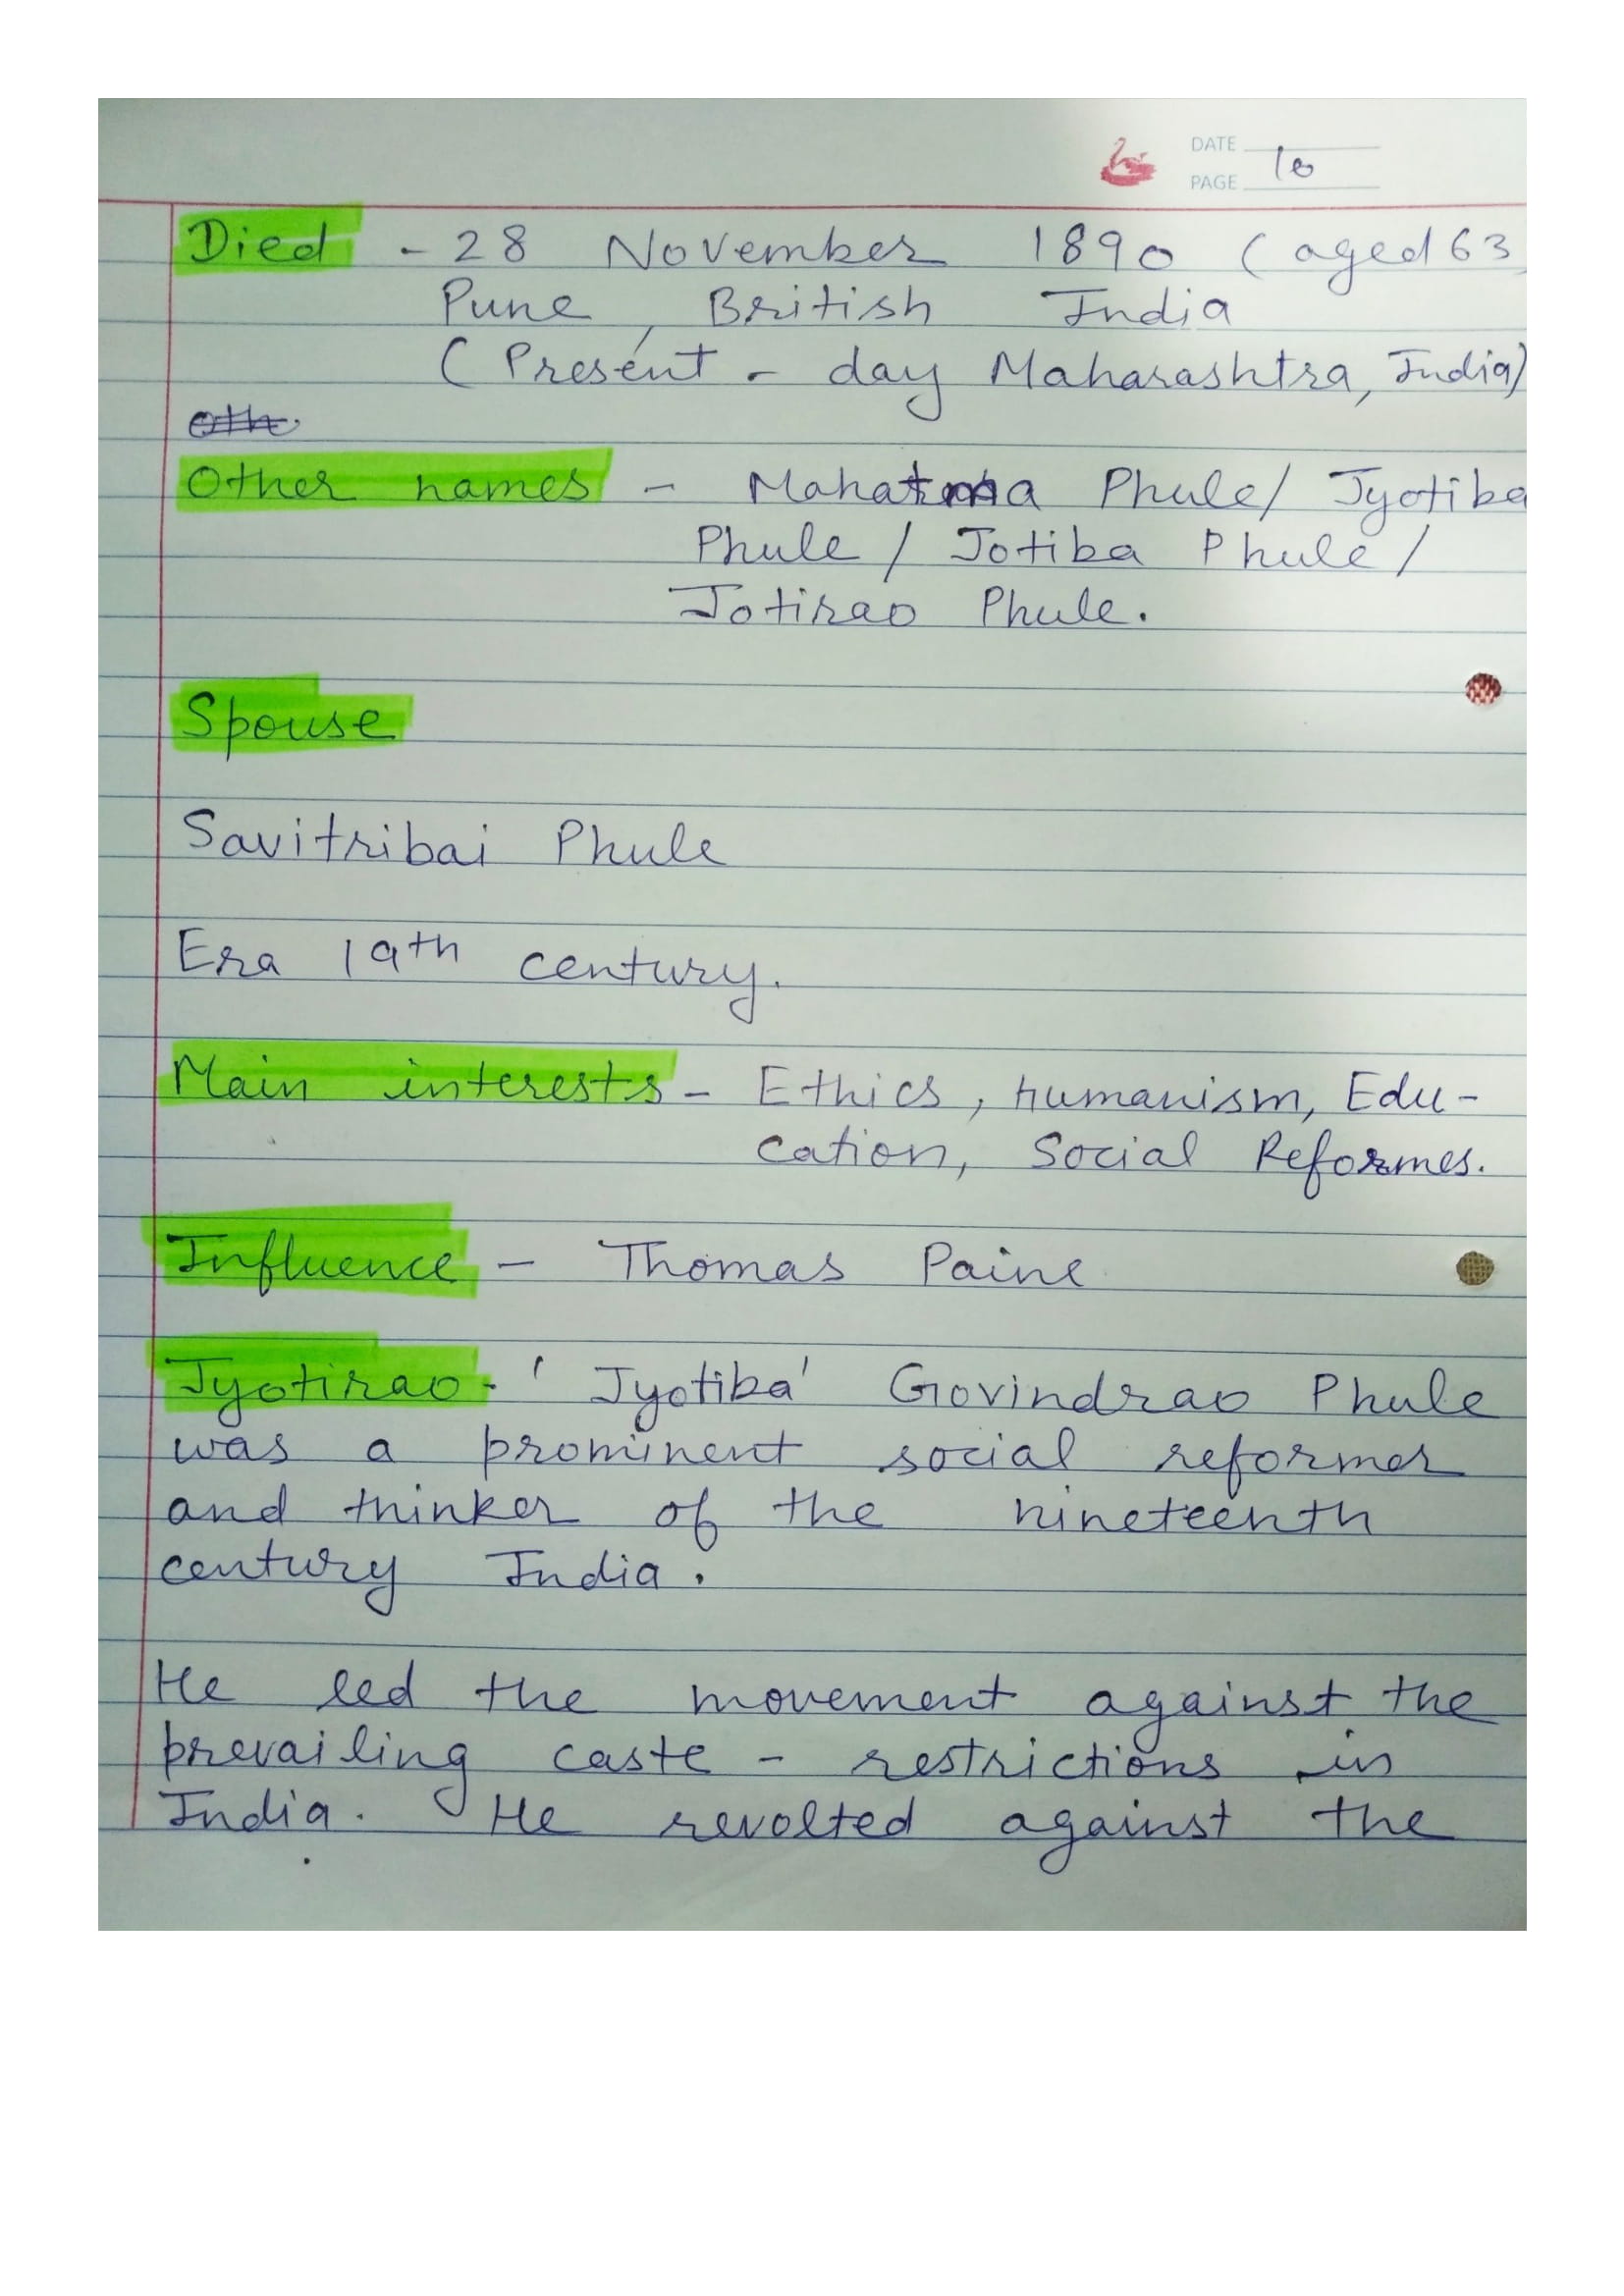 DATE
PAGE 10
Died - 28 November 1890 (aged 63
Pune, British India
(Present - day Maharashtra, India)
Oth
Other names - Mahatma Phule/ Jyotiba
Phule / Jotiba Phule /
Jotirao Phule.
Spouse
Savitribai Phule
Era 19th century.
Main interests - Ethics, humanism, Edu-
cation, Social Reformes.
Influence - Thomas Paine
Jyotirao - 'Jyotiba' Govindrao Phule
was a prominent social reformer
and thinker of the nineteenth
century India.
He led the movement against the
prevailing caste - restrictions in
India. He revolted against the